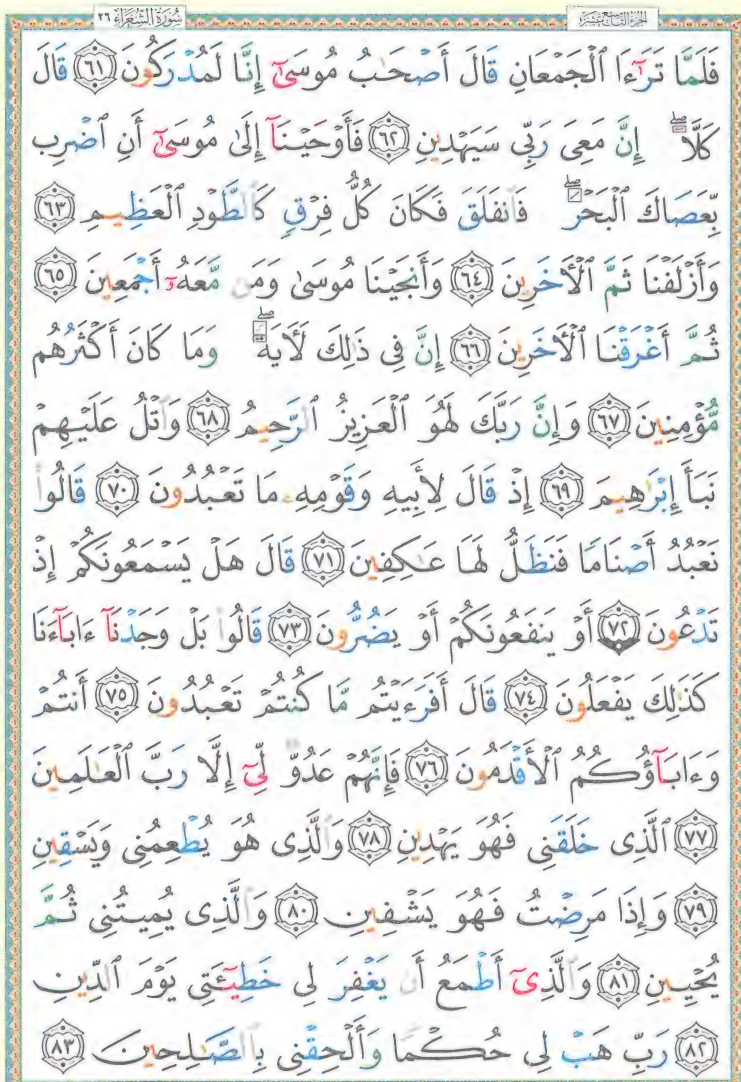 الجزء التاسع عشر
سُورَةُ الشُّعَرَاءِ ٢٦
فَلَمَّا تَرَٰٓءَا ٱلْجَمْعَانِ قَالَ أَصْحَٰبُ مُوسَىٰٓ إِنَّا لَمُدْرَكُونَ ٦١ قَالَ
كَلَّآ ۖ إِنَّ مَعِىَ رَبِّى سَيَهْدِينِ ٦٢ فَأَوْحَيْنَآ إِلَىٰ مُوسَىٰٓ أَنِ ٱضْرِب
بِّعَصَاكَ ٱلْبَحْرَ ۖ فَٱنفَلَقَ فَكَانَ كُلُّ فِرْقٍ كَٱلطَّوْدِ ٱلْعَظِيمِ ٦٣
وَأَزْلَفْنَا ثَمَّ ٱلْأَخَرِينَ ٦٤ وَأَنجَيْنَا مُوسَىٰ وَمَن مَّعَهُۥٓ أَجْمَعِينَ ٦٥
ثُمَّ أَغْرَقْنَا ٱلْأَخَرِينَ ٦٦ إِنَّ فِى ذَٰلِكَ لَأَيَةً ۖ وَمَا كَانَ أَكْثَرُهُم
مُّؤْمِنِينَ ٦٧ وَإِنَّ رَبَّكَ لَهُوَ ٱلْعَزِيزُ ٱلرَّحِيمُ ٦٨ وَٱتْلُ عَلَيْهِمْ
نَبَأَ إِبْرَٰهِيمَ ٦٩ إِذْ قَالَ لِأَبِيهِ وَقَوْمِهِۦ مَا تَعْبُدُونَ ٧٠ قَالُوا۟
نَعْبُدُ أَصْنَامًا فَنَظَلُّ لَهَا عَٰكِفِينَ ٧١ قَالَ هَلْ يَسْمَعُونَكُمْ إِذْ
تَدْعُونَ ٧٢ أَوْ يَنفَعُونَكُمْ أَوْ يَضُرُّونَ ٧٣ قَالُوا۟ بَلْ وَجَدْنَآ ءَابَآءَنَا
كَذَٰلِكَ يَفْعَلُونَ ٧٤ قَالَ أَفَرَءَيْتُم مَّا كُنتُمْ تَعْبُدُونَ ٧٥ أَنتُمْ
وَءَابَآؤُكُمُ ٱلْأَقْدَمُونَ ٧٦ فَإِنَّهُمْ عَدُوٌّ لِّىٓ إِلَّا رَبَّ ٱلْعَٰلَمِينَ
٧٧ ٱلَّذِى خَلَقَنِى فَهُوَ يَهْدِينِ ٧٨ وَٱلَّذِى هُوَ يُطْعِمُنِى وَيَسْقِينِ
٧٩ وَإِذَا مَرِضْتُ فَهُوَ يَشْفِينِ ٨٠ وَٱلَّذِى يُمِيتُنِى ثُمَّ
يُحْيِينِ ٨١ وَٱلَّذِىٓ أَطْمَعُ أَن يَغْفِرَ لِى خَطِيٓـَٔتِى يَوْمَ ٱلدِّينِ
٨٢ رَبِّ هَبْ لِى حُكْمًا وَأَلْحِقْنِى بِٱلصَّٰلِحِينَ ٨٣